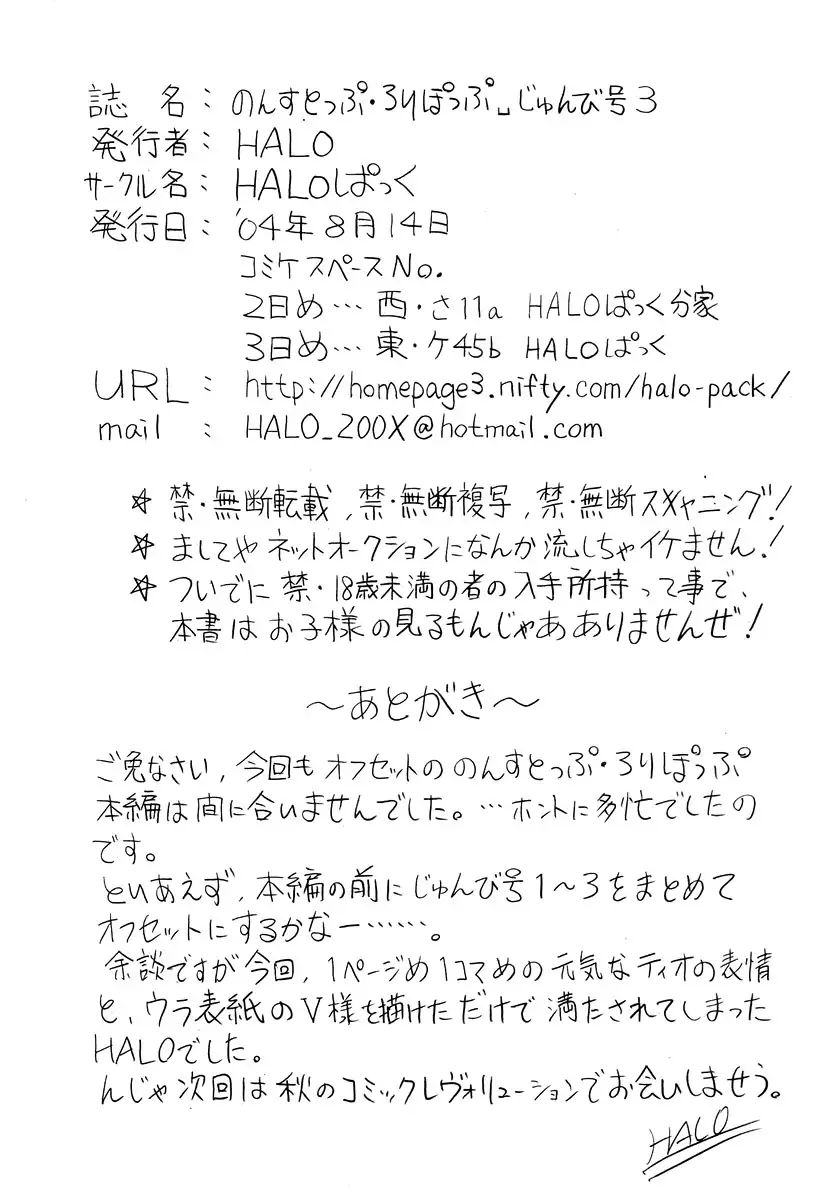 誌　名：のんすとっぷ・ろりぽっぷ␣じゅんび号3
発行者：HALO
サークル名：HALOぱっく
発行日：'04年8月14日
コミケスペースNo.
2日め…西・さ11a HALOぱっく分家
3日め…東・ケ45b HALOぱっく
URL：http://homepage3.nifty.com/halo-pack/
mail：HALO_200X@hotmail.com
☆禁・無断転載,禁・無断複写,禁・無断スキャニング!
☆ましてやネットオークションになんか流しちゃイケません!
☆ついでに禁・18歳未満の者の入手所持って事で、
本書はお子様の見るもんじゃあありませんぜ!
～あとがき～
ご免なさい,今回もオフセットののんすとっぷ・ろりぽっぷ
本編は間に合いませんでした。…ホントに多忙でしたの
です。
といあえず,本編の前にじゅんび号1～3をまとめて
オフセットにするかなー……。
余談ですが今回,1ページめ1コマめの元気なティオの表情
と,ウラ表紙のV様を描けただけで満たされてしまった
HALOでした。
んじゃ次回は秋のコミックレヴォリューションでお会いしませう。
HALO